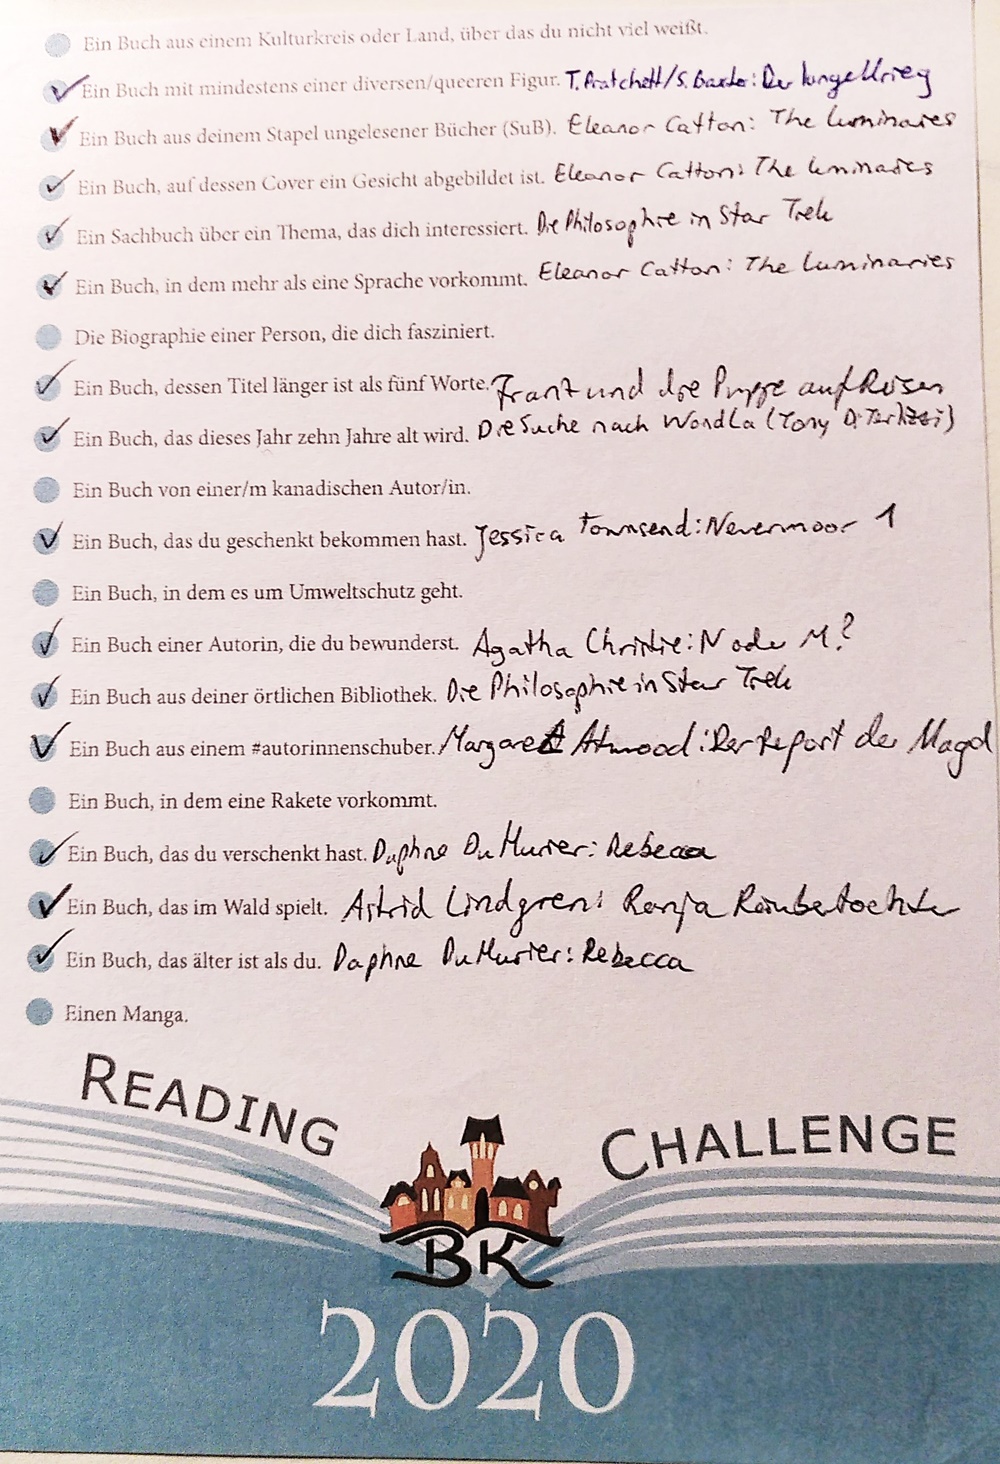 Ein Buch aus einem Kulturkreis oder Land, über das du nicht viel weißt.
Ein Buch mit mindestens einer diversen/queeren Figur. T. Pratchett/S. Baxter: Der lange Krieg
Ein Buch aus deinem Stapel ungelesener Bücher (SuB). Eleanor Catton: The Luminaries
Ein Buch, auf dessen Cover ein Gesicht abgebildet ist. Eleanor Catton: The Luminaries
Ein Sachbuch über ein Thema, das dich interessiert. Die Philosophie in Star Trek
Ein Buch, in dem mehr als eine Sprache vorkommt. Eleanor Catton: The Luminaries
Die Biographie einer Person, die dich fasziniert.
Ein Buch, dessen Titel länger ist als fünf Worte. Franz und die Puppe auf Reisen
Ein Buch, das dieses Jahr zehn Jahre alt wird. Die Suche nach WondLa (Tony DiTerlizzi)
Ein Buch von einer/m kanadischen Autor/in.
Ein Buch, das du geschenkt bekommen hast. Jessica Townsend: Nevermoor 1
Ein Buch, in dem es um Umweltschutz geht.
Ein Buch einer Autorin, die du bewunderst. Agatha Christie: N oder M?
Ein Buch aus deiner örtlichen Bibliothek. Die Philosophie in Star Trek
Ein Buch aus einem #autorinnenschuber. Margaret Atwood: Der Report der Magd
Ein Buch, in dem eine Rakete vorkommt.
Ein Buch, das du verschenkt hast. Daphne Du Murier: Rebecca
Ein Buch, das im Wald spielt. Astrid Lindgren: Ronja Räubertochter
Ein Buch, das älter ist als du. Daphne Du Murier: Rebecca
Einen Manga.
READING CHALLENGE
BK
2020